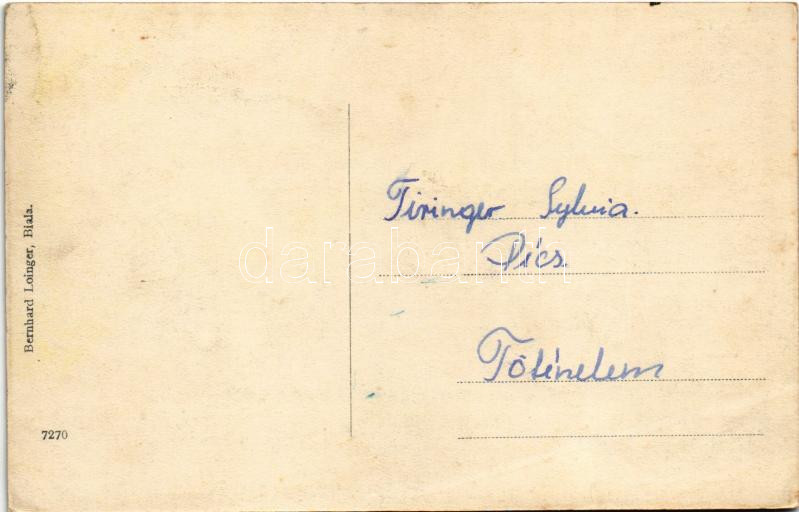 Bernhard Loinger, Biala.
7270
Tiringer Sylvia.
Pécs
Töténelem
darabanth